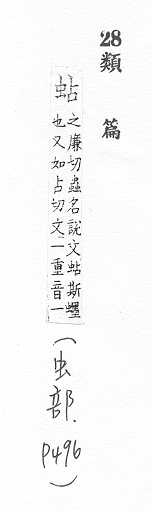 28類篇
蛅
之廉切蟲名說文蛅斯蟔
也又如占切文一重音一
(虫部.P496)